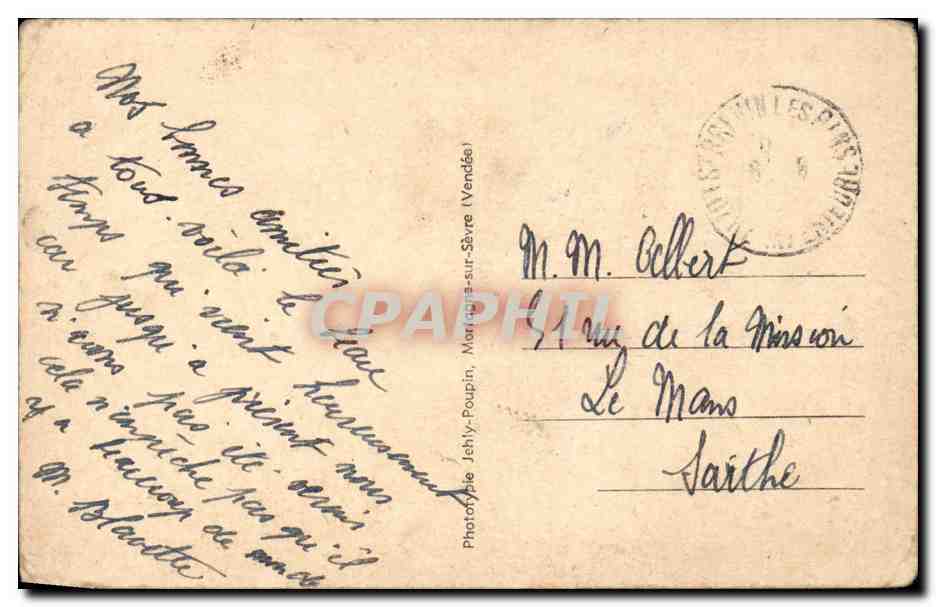 Nos bonnes amitiés
a tous. voilà le beau
temps qui vient heureusement
car jusqu'à présent nous
n'avons pas été servis
cela n'empêche pas qu'il
y a beaucoup de monde
M. Blavette
Phototypie Jehly-Poupin, Mortagne-sur-Sèvre (Vendée)
LES PINS
INFERIEURE
M. M.
51 rue de la Mission
Le Mans
Sarthe
CPAPHIL